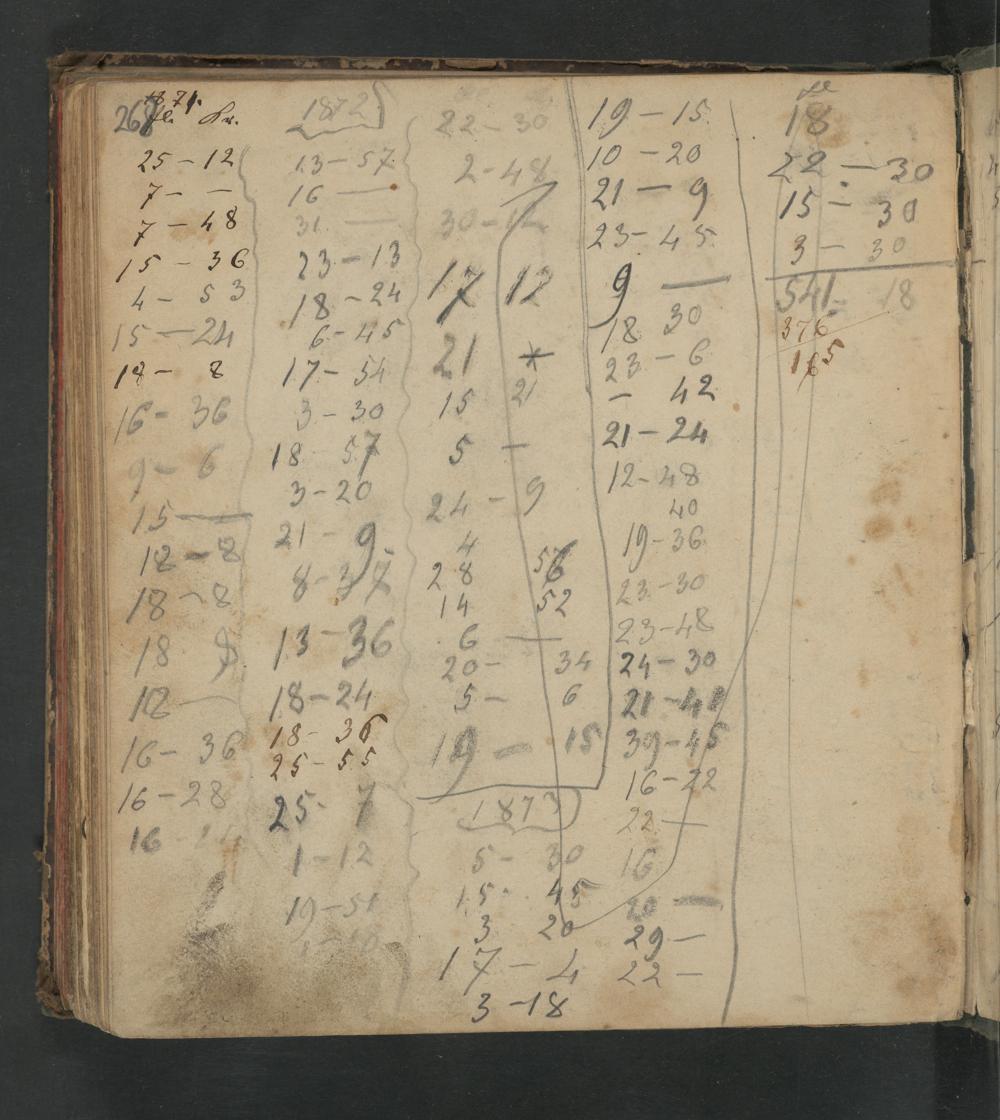 268
18 71.
fl. Kr.
25 - 12
7 - -
7 - 48
15 - 36
4 - 53
15 - 24
18 - 8
16 - 36
9 - 6
15 -
18 - 8
18 - 8
18
18 -
16 - 36
16 - 28
16
1872
13 - 57
16 -
31 -
23 - 13
18 - 24
6 - 45
17 - 54
3 - 30
18 57
3 - 20
21 - 9
8 - 37
13 - 36
18 - 24
18 - 36
25 - 55
25 - 7
1 - 12
19 - 51
22 - 30
2 - 48
30 - 12
17 12
21
15 21
5 -
24 - 9
4
28 56
14 52
6 -
20 - 34
5 - 6
19 - 15
1873
5 - 30
15 - 45
3 20
17 - 4
3 - 18
19 - 15
10 - 20
21 - 9
23 - 45
9 -
18 30
23 - 6
- 42
21 - 24
12 - 48
40
19 - 36
23 - 30
23 - 48
24 - 30
21 - 41
39 - 45
16 - 22
22 -
16
20 -
29 -
22 -
fl
18
22 - 30
15 - 30
3 - 30
541 - 18
376
165